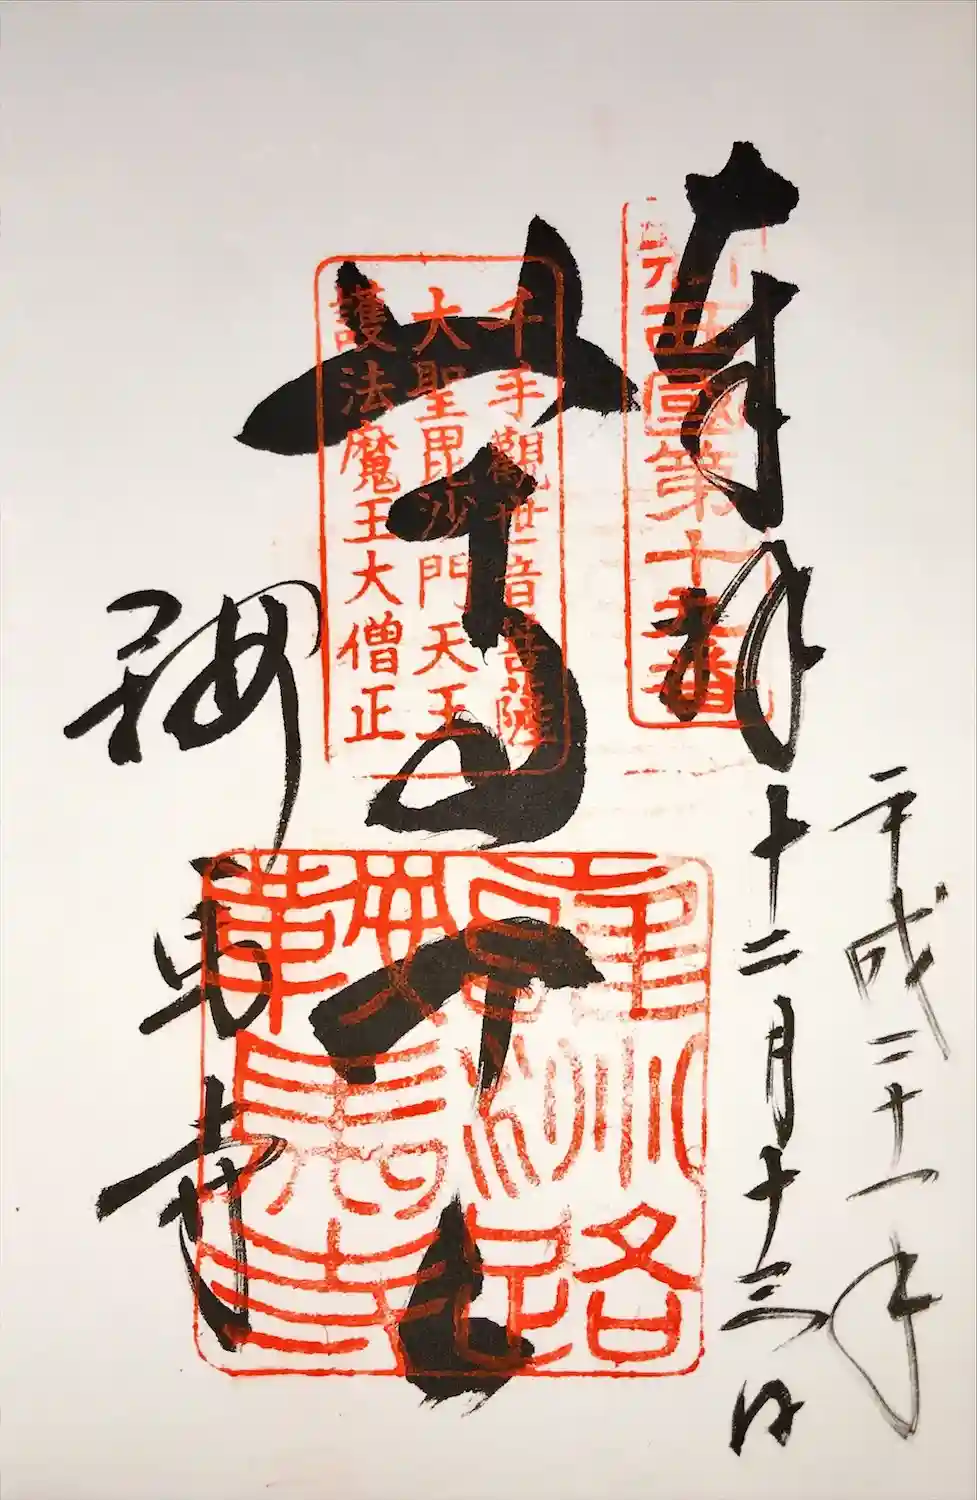 平成二十一年
十二月十三日
奉拝
新西國第十九番
尊天
千手觀世音菩薩
大聖毘沙門天王
護法魔王大僧正
雍州路
鞍馬寺
鞍馬寺